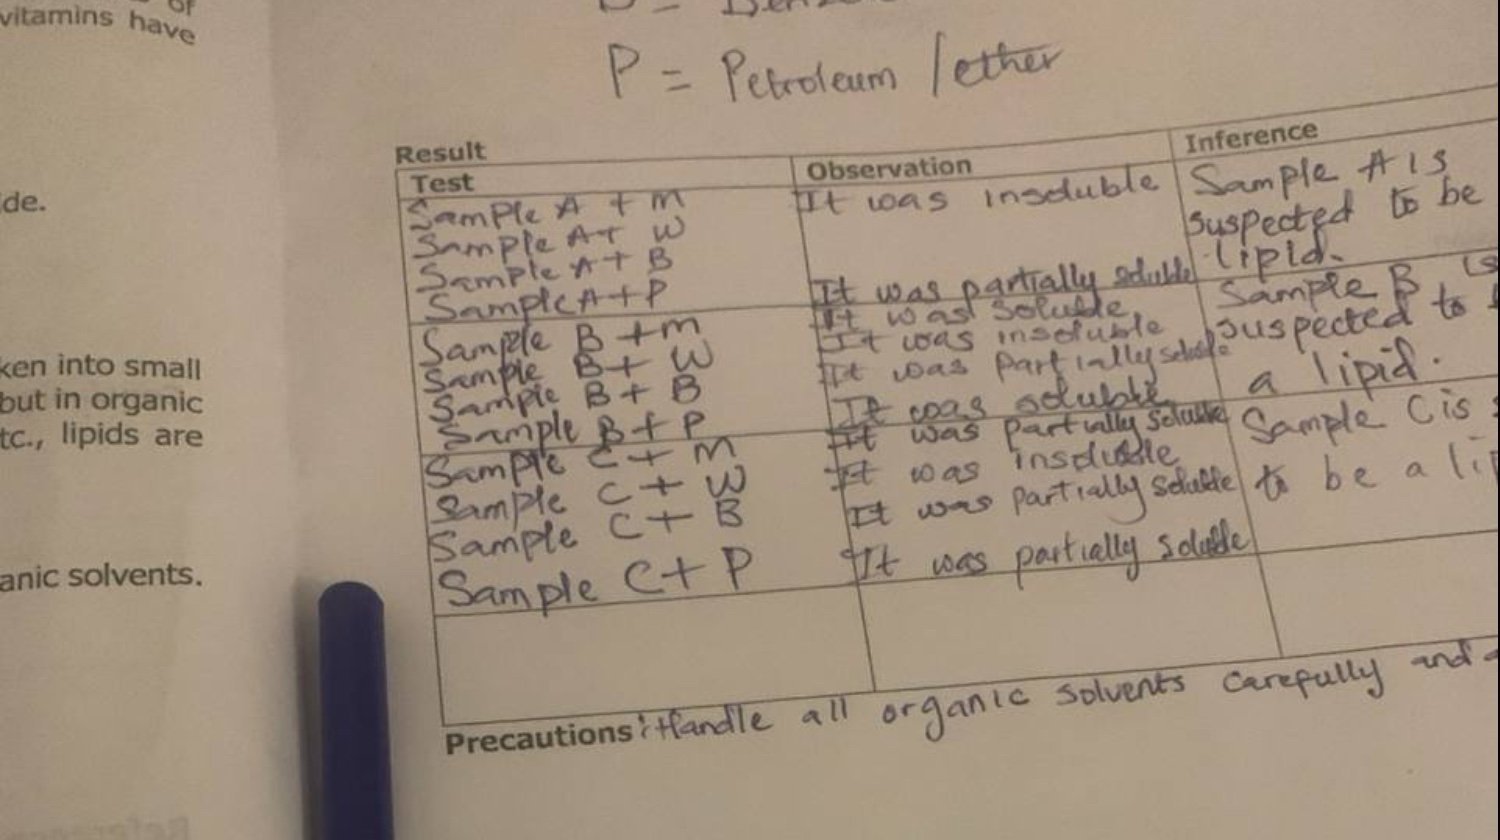 of
vitamins have
de.
ken into small
but in organic
tc., lipids are
anic solvents.
P = Petroleum /ether
Result
Test
Observation
Inference
Sample A + M
Sample A+ W
Sample A+ B
Sample A+P
It was insoluble
It was partially soluble
Sample A is
suspected to be
lipid.
Sample B +m
Sample B+ W
Sample B+ B
Sample B+P
It was soluble
It was insoluble
It was Partially soluble
It was soluble
Sample B is
suspected to
a lipid.
Sample C + M
Sample C + W
Sample C + B
Sample C+ P
It was partially soluble
It was insoluble
It was partially soluble
It was partially soluble
Sample C is
to be a lip
Precautions: Handle all organic solvents carefully and